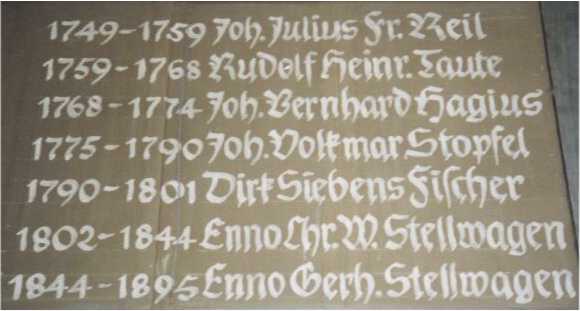 1749-1759 Joh. Julius Fr. Reil
1759-1768 Rudolf Heinr. Taute
1768-1774 Joh. Bernhard Hagius
1775-1790 Joh. Volkmar Stopfel
1790-1801 Dirk Siebens Fiſcher
1802-1844 Enno Chr. W. Stellwagen
1844-1895 Enno Gerh. Stellwagen